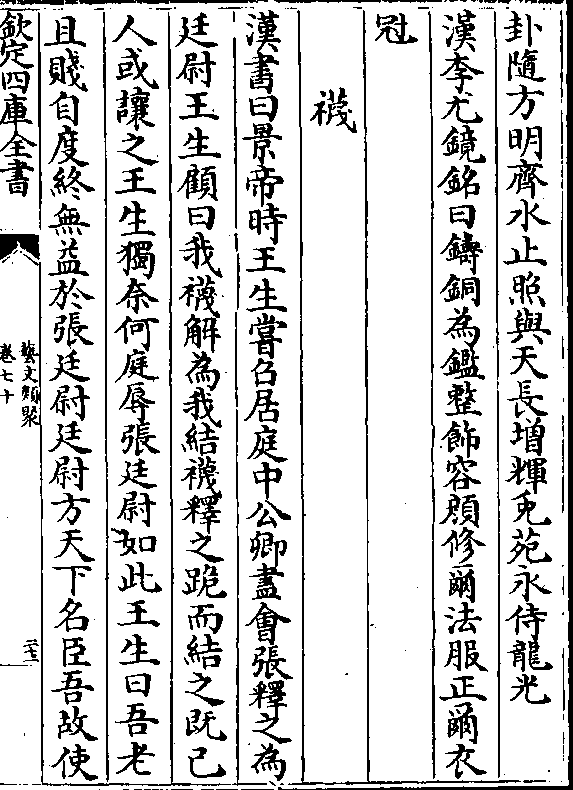 卦隨方明齊水止照與天長增輝兎苑永侍龍光
漢李尤鏡銘曰鑄銅為鑑整飾容顔修爾法服正爾衣
冠
襪
漢書曰景帝時王生嘗召居庭中公卿盡會張釋之為
廷尉王生顧曰我襪解為我結襪釋之跪而結之既已
人或讓之王生獨奈何庭辱張廷尉如此王生曰吾老
且賤自度終無益於張廷尉廷尉方天下名臣吾故使
欽定四庫全書
藝文類聚
卷七十